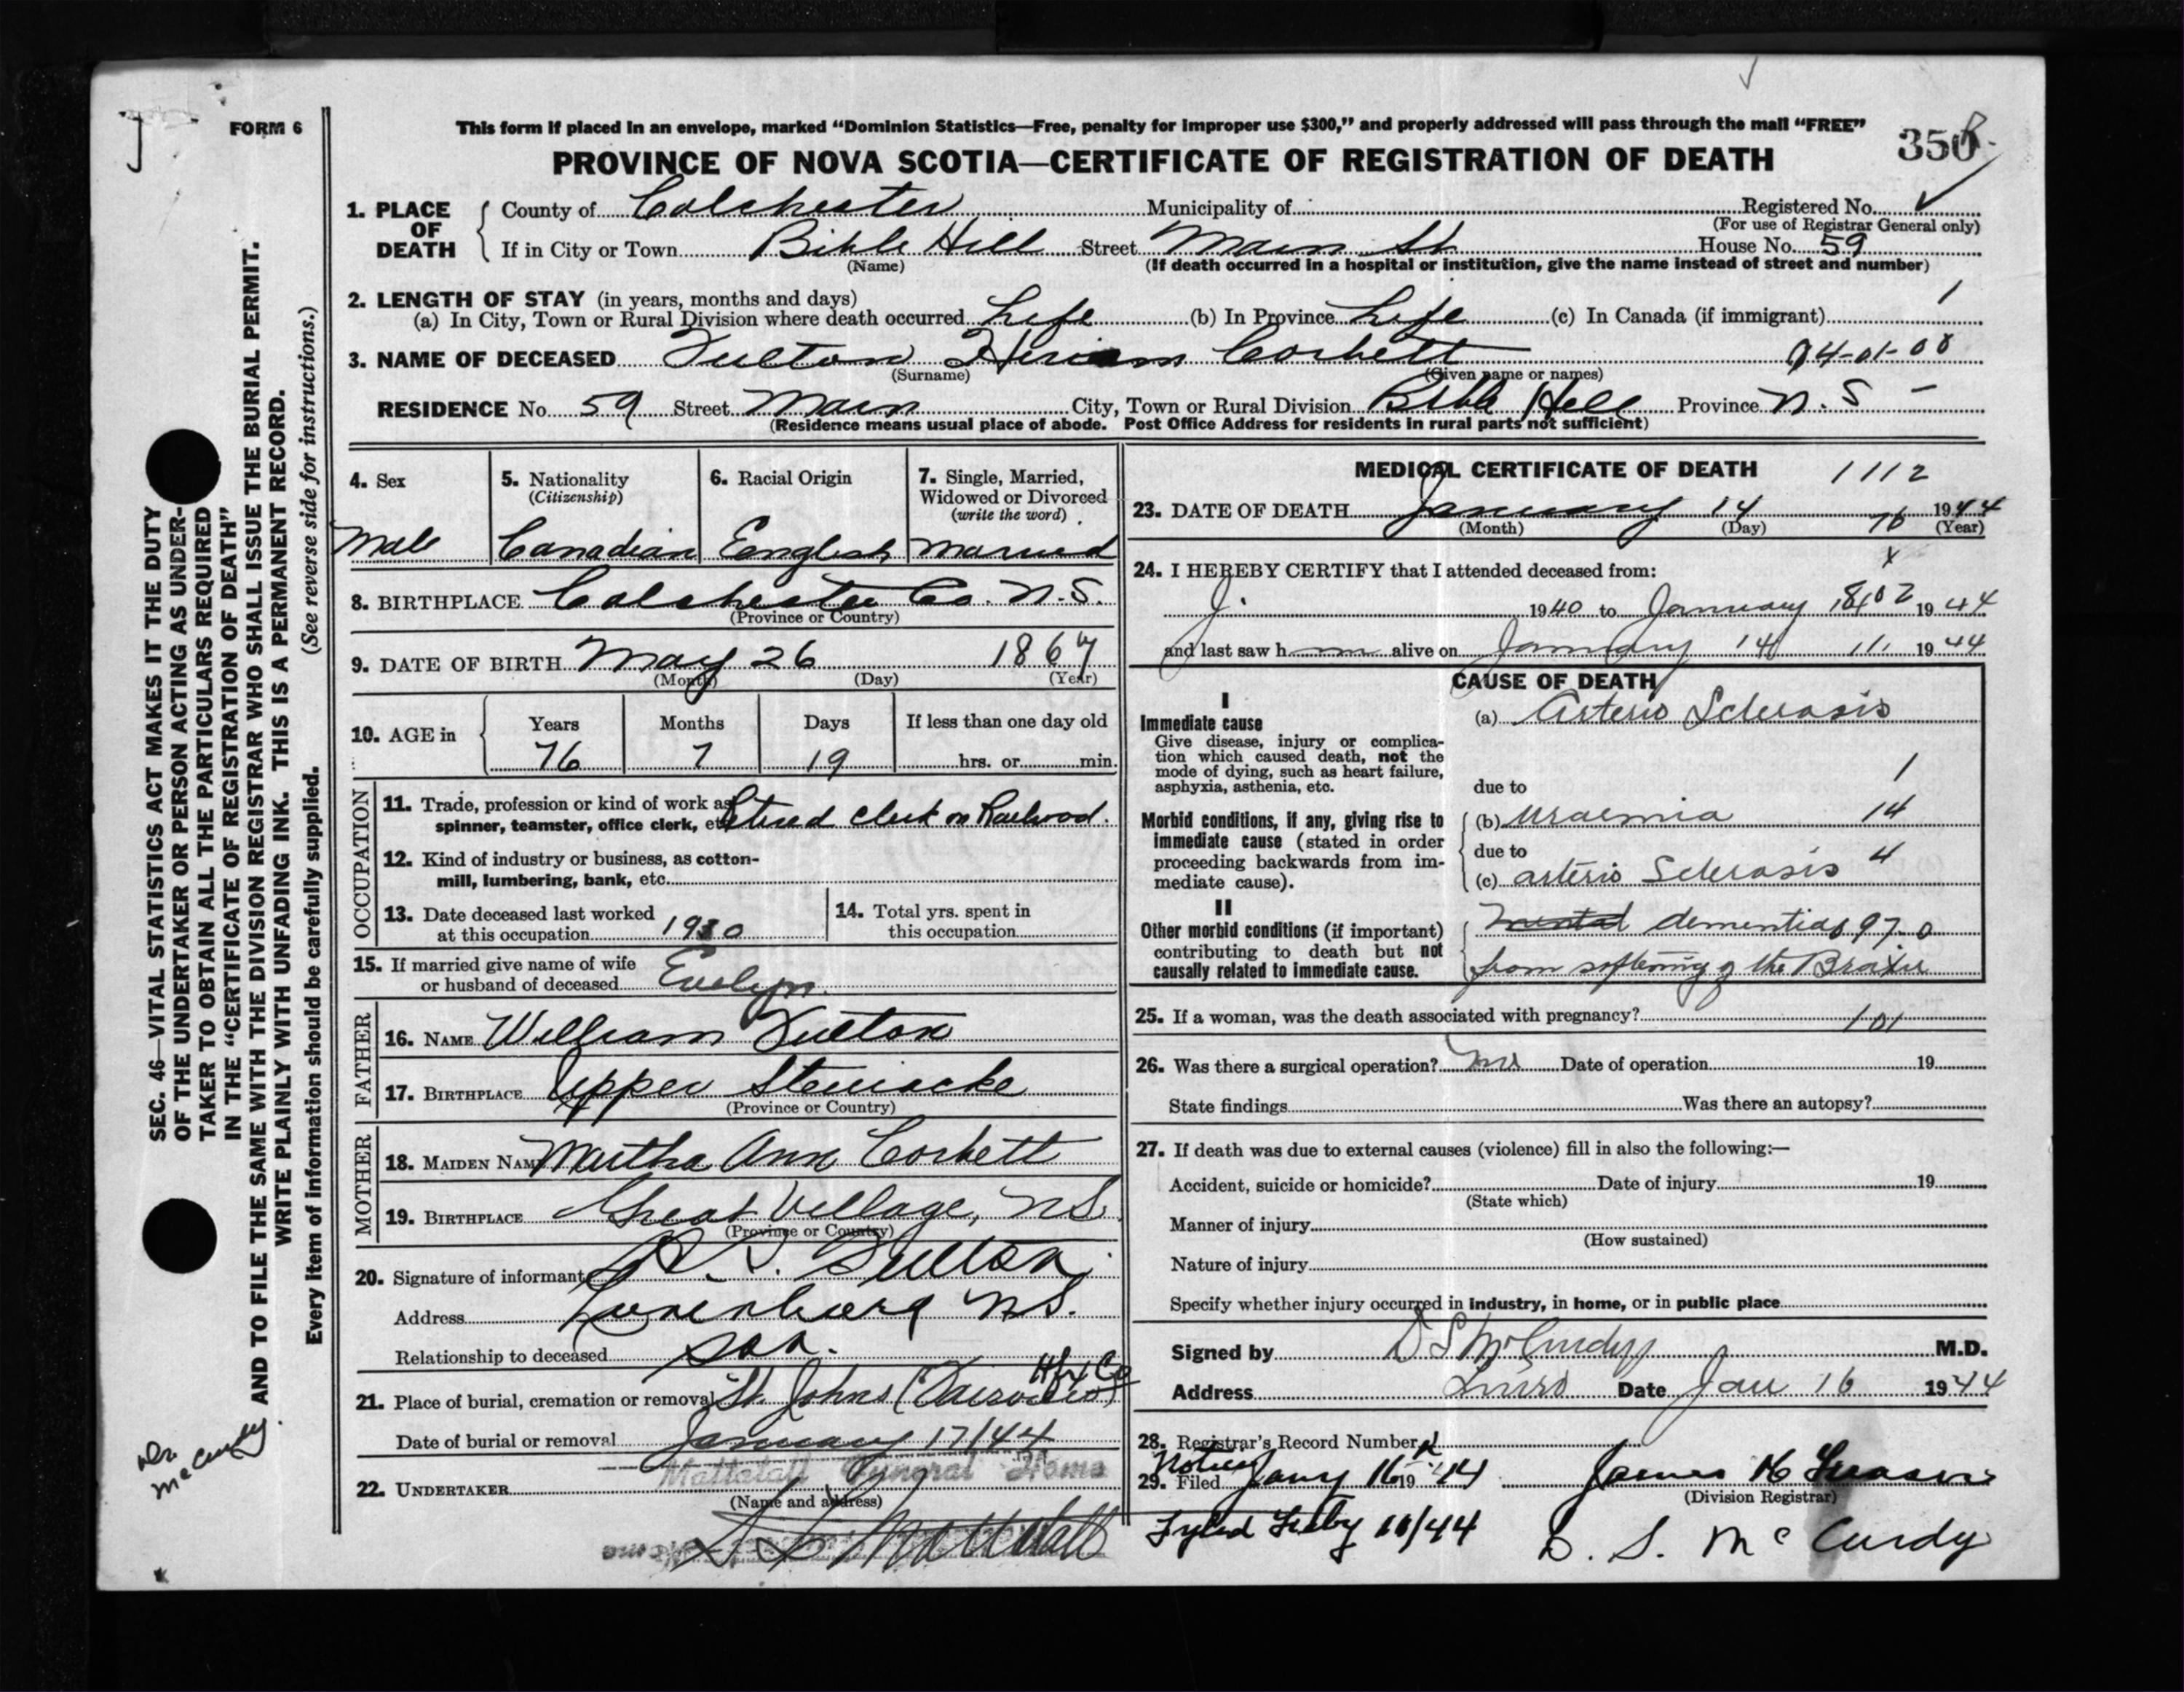 FORM 6
This form if placed in an envelope, marked “Dominion Statistics—Free, penalty for improper use $300,” and properly addressed will pass through the mail “FREE”
350
PROVINCE OF NOVA SCOTIA—CERTIFICATE OF REGISTRATION OF DEATH
1. PLACE OF DEATH
County of Colchester Municipality of Registered No.
(For use of Registrar General only)
If in City or Town Bible Hill Street Main St. House No. 59
(Name) (If death occurred in a hospital or institution, give the name instead of street and number)
2. LENGTH OF STAY (in years, months and days)
1
(a) In City, Town or Rural Division where death occurred Life (b) In Province Life (c) In Canada (if immigrant)
3. NAME OF DECEASED Fulton Hiram Corbett
(Surname) (Given name or names)
RESIDENCE No. 59 Street Main City, Town or Rural Division Bible Hill Province N. S
(Residence means usual place of abode. Post Office Address for residents in rural parts not sufficient)
4. Sex
Male
5. Nationality
(Citizenship)
Canadian
6. Racial Origin
English
7. Single, Married,
Widowed or Divorced
(write the word)
Married
8. BIRTHPLACE Colchester Co. N.S.
(Province or Country)
9. DATE OF BIRTH May 26 1867
(Month) (Day) (Year)
10. AGE in
Years Months Days If less than one day old
76 7 19 hrs. or min.
OCCUPATION
11. Trade, profession or kind of work as
spinner, teamster, office clerk, etc. Retired clerk on Railroad.
12. Kind of industry or business, as cotton-
mill, lumbering, bank, etc.
13. Date deceased last worked
at this occupation 1930
14. Total yrs. spent in
this occupation
15. If married give name of wife
or husband of deceased Evelyn
FATHER
16. NAME William Fulton
17. BIRTHPLACE Upper Stewiacke
(Province or Country)
MOTHER
18. MAIDEN NAME Martha Ann Corbett
19. BIRTHPLACE Great Village, N.S.
(Province or Country)
20. Signature of informant Fulton
Address Lunenburg N.S.
Relationship to deceased son.
Hfx Co
21. Place of burial, cremation or removal St. Johns
Date of burial or removal January 17/44
22. UNDERTAKER Mattatall Funeral Home
(Name and address)
Mattatall
MEDICAL CERTIFICATE OF DEATH 1112
23. DATE OF DEATH January 14 1944
(Month) (Day) 76 (Year)
24. I HEREBY CERTIFY that I attended deceased from:
J. 1940 to January 1944
and last saw him alive on January 14 1944
CAUSE OF DEATH
I
Immediate cause
Give disease, injury or complica-
tion which caused death, not the
mode of dying, such as heart failure,
asphyxia, asthenia, etc.
(a) Arterio Sclerosis
1
due to
Morbid conditions, if any, giving rise to
immediate cause (stated in order
proceeding backwards from im-
mediate cause).
(b) Uraemia 14
due to
(c) arterio Sclerosis 4
II
Other morbid conditions (if important)
contributing to death but not
causally related to immediate cause.
mental dementia 97.0
from softening of the Brain
25. If a woman, was the death associated with pregnancy? 101
26. Was there a surgical operation? no Date of operation 19
State findings Was there an autopsy?
27. If death was due to external causes (violence) fill in also the following:—
Accident, suicide or homicide? Date of injury 19
(State which)
Manner of injury
(How sustained)
Nature of injury
Specify whether injury occurred in industry, in home, or in public place
Signed by D S McCurdy M.D.
Address Truro Date Jan 16 1944
28. Registrar's Record Number
Notice
29. Filed Jany 16 1944 James H
(Division Registrar)
Fyled Feby 10/44 D. S. McCurdy
SEC. 46—VITAL STATISTICS ACT MAKES IT THE DUTY
OF THE UNDERTAKER OR PERSON ACTING AS UNDER-
TAKER TO OBTAIN ALL THE PARTICULARS REQUIRED
IN THE “CERTIFICATE OF REGISTRATION OF DEATH”
AND TO FILE THE SAME WITH THE DIVISION REGISTRAR WHO SHALL ISSUE THE BURIAL PERMIT.
WRITE PLAINLY WITH UNFADING INK. THIS IS A PERMANENT RECORD.
Every item of information should be carefully supplied. (See reverse side for instructions.)
Dr.
McCurdy